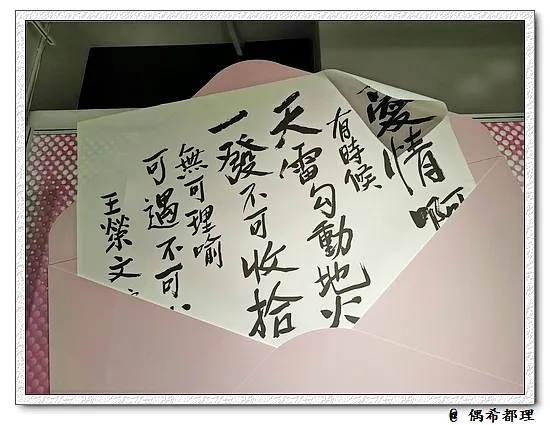 愛情啊
有時候
天雷勾動地火
一發不可收拾
無可理喻
可遇不可
王榮文
@ 偶希都理